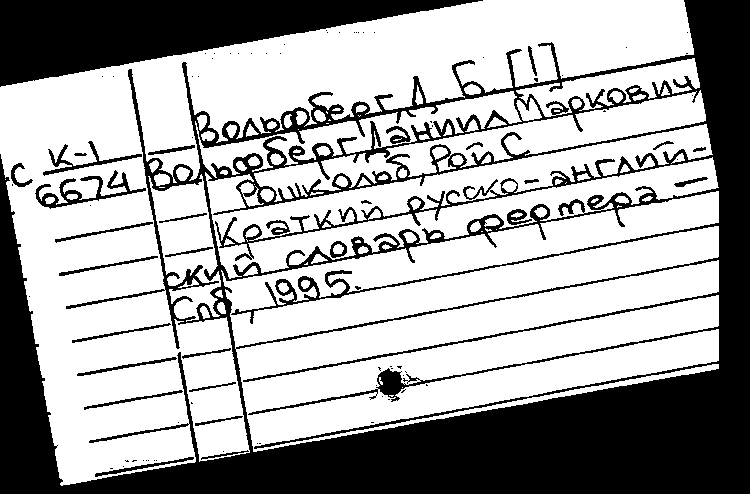 Вольфберг, Д. Б. [!]
С К-1
6674
Вольфберг, Даниил Маркович,
Рошкольб, Рой С
Краткий русско-английй-
ский словарь фертера —
Спб., 1995.